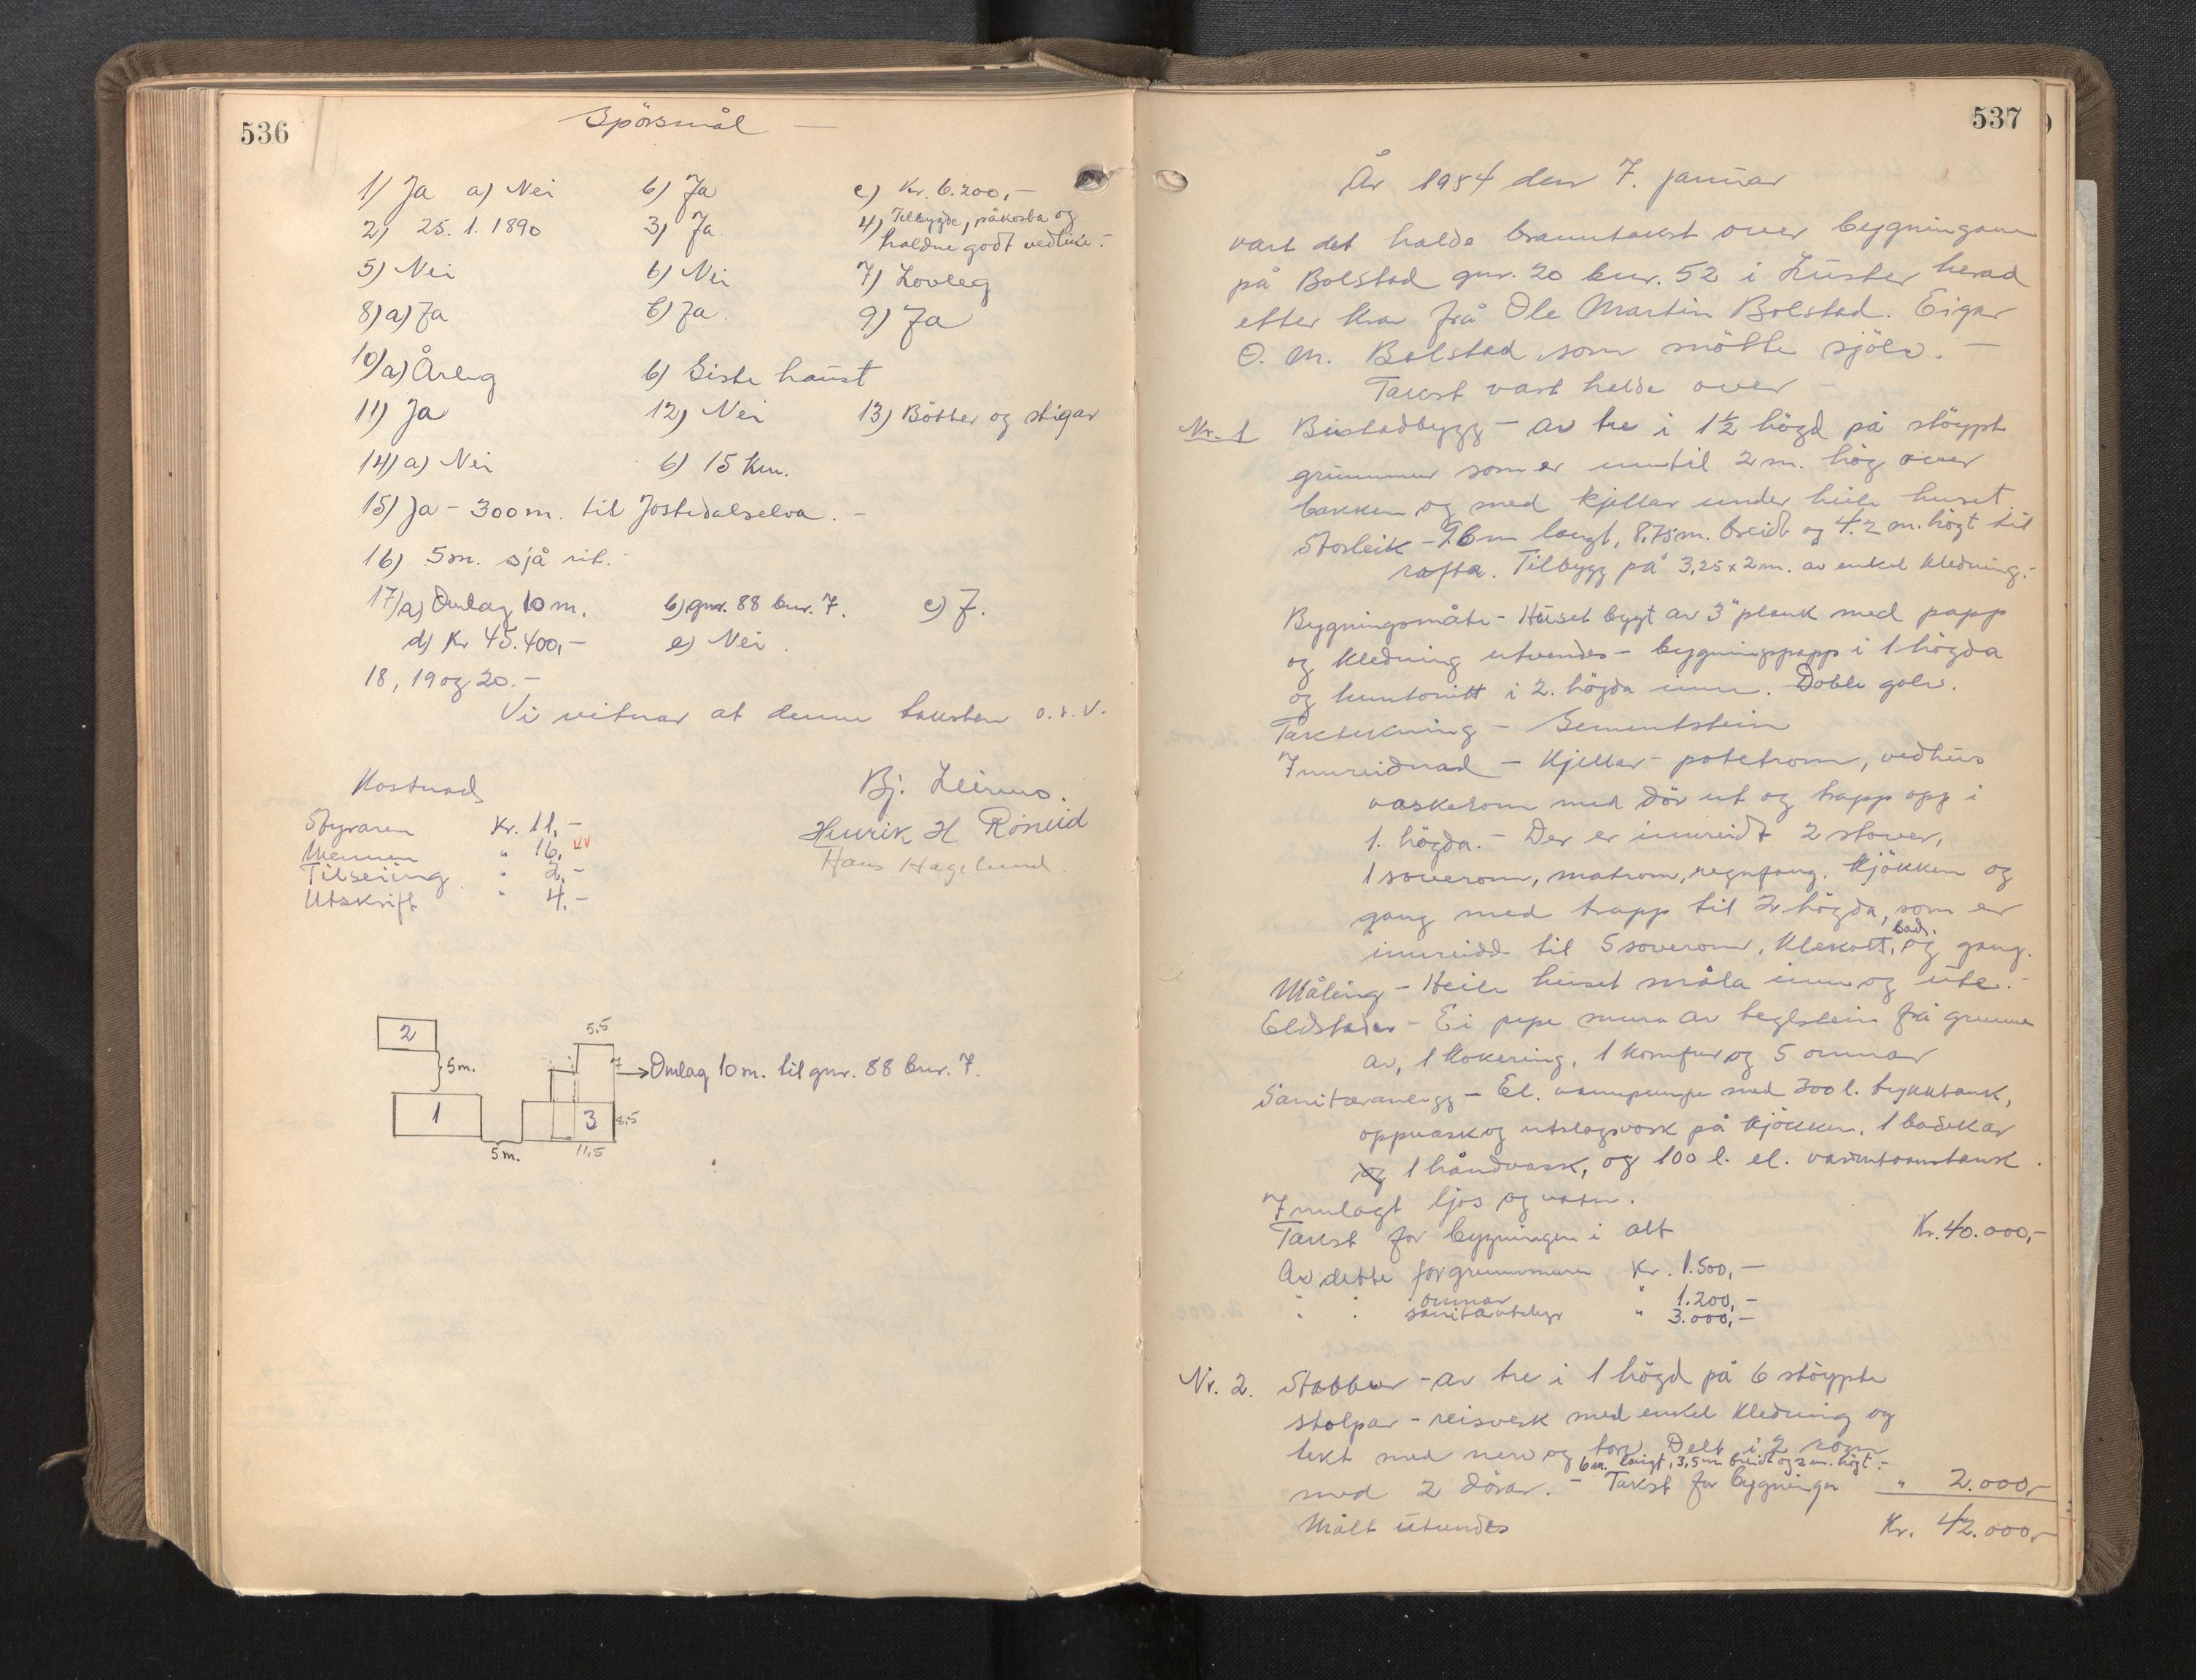 536
Spörsmål —
1) Ja a) Nei b) Ja c) Kr. 6.200,-
2) 25. 1. 1890 3) Ja 4) Tilbygde, påkosta og
haldne godt vedlike.-
5) Nei 6) Nei 7) Lovleg
8) a) Ja b) Ja. 9) Ja
10) a) Årleg b) Siste haust
11) Ja 12) Nei 13) Bötter og stigar
14) a) Nei b) 15 km.
15) Ja - 300 m. til Jostedalselva. -
16) 5 m. sjå rit.-
17) a) Omlag 10 m. b) gnr. 88 bnr. 7. c) J.
d) Kr 45.400,- e) Nei.
18, 19 og 20.-
Vi vitnar at denne taksten o.s.v.
Kostnad
Bj. Leirmo.
Styraren Kr. 11,-
Henrik H Röneid
Mennene " 16,-
Hans Hagelund
Tilseiing " 2,-
Utskrift " 4,-
2
5 m.
1
5 m.
5,5
7
3
8,5
11,5
Omlag 10 m. til gnr. 88 bnr. 7.
537
År 1954 den 7. januar
vart det halde branntakst over bygningane
på Bolstad gnr. 20 bnr. 52 i Luster herad
etter krav frå Ole Martin Bolstad. Eigar
O. M. Bolstad som mötte sjölv. —
Takst vart halde over -
Nr. 1 Bustadbygg - av tre i 1½ högd på stöypt
grunnmur som er inntil 2 m. hög over
bakken og med kjellar under heile huset
Storleik - 9.6 m langt, 8,75 m. breidt og 4.2 m. högt til
rafta. Tilbygg på 3,25 x 2 m. av enkel kledning.-
Bygningsmåte - Huset bygt av 3" plank med papp
og kledning utvendes - bygningspapp i 1 högda
og huntonitt i 2. högda inne. Doble golv.
Taktekning - Sementstein
Innreidnad - Kjellar - potetrom, vedhus
vaskerom med dör ut og trapp opp i
1. högda. - Der er innreidt 2 stover,
1 soverom, matrom, regnfang. Kjökken og
gang med trapp til 2 högda, som er
innreidd til 5 soverom, klekott, bad, og gang.
Måling - Heile huset måla inne og ute.-
Eldstader - Ei pipe mura av teglstein frå grunnen
av, 1 kokering, 1 komfyr og 5 omnar
Sanitæranlegg - El. vannpumpe med 300 l. trykktank,
oppvask og utslagsvask på kjökken. 1 badekar
og 1 håndvask, og 100 l. el. varmtvannstank.
Innlagt ljos og vatn.
Takst for bygningen i alt Kr. 40.000,-
Av dette for grunnmuren Kr. 1.500,-
" " omnar " 1.200,-
sanitærutstyr " 3.000,-
Nr. 2. Stabbur - av tre i 1 högd på 6 stöypte
stolpar - reisverk med enkel kledning og
tekt med never og torv. Delt i 2 rom
6 m. langt, 3,5 m breidt og 2 m. högt.-
med 2 dörar. - Takst for bygningen " 2.000,-
Målt utvendes Kr. 42.000,-